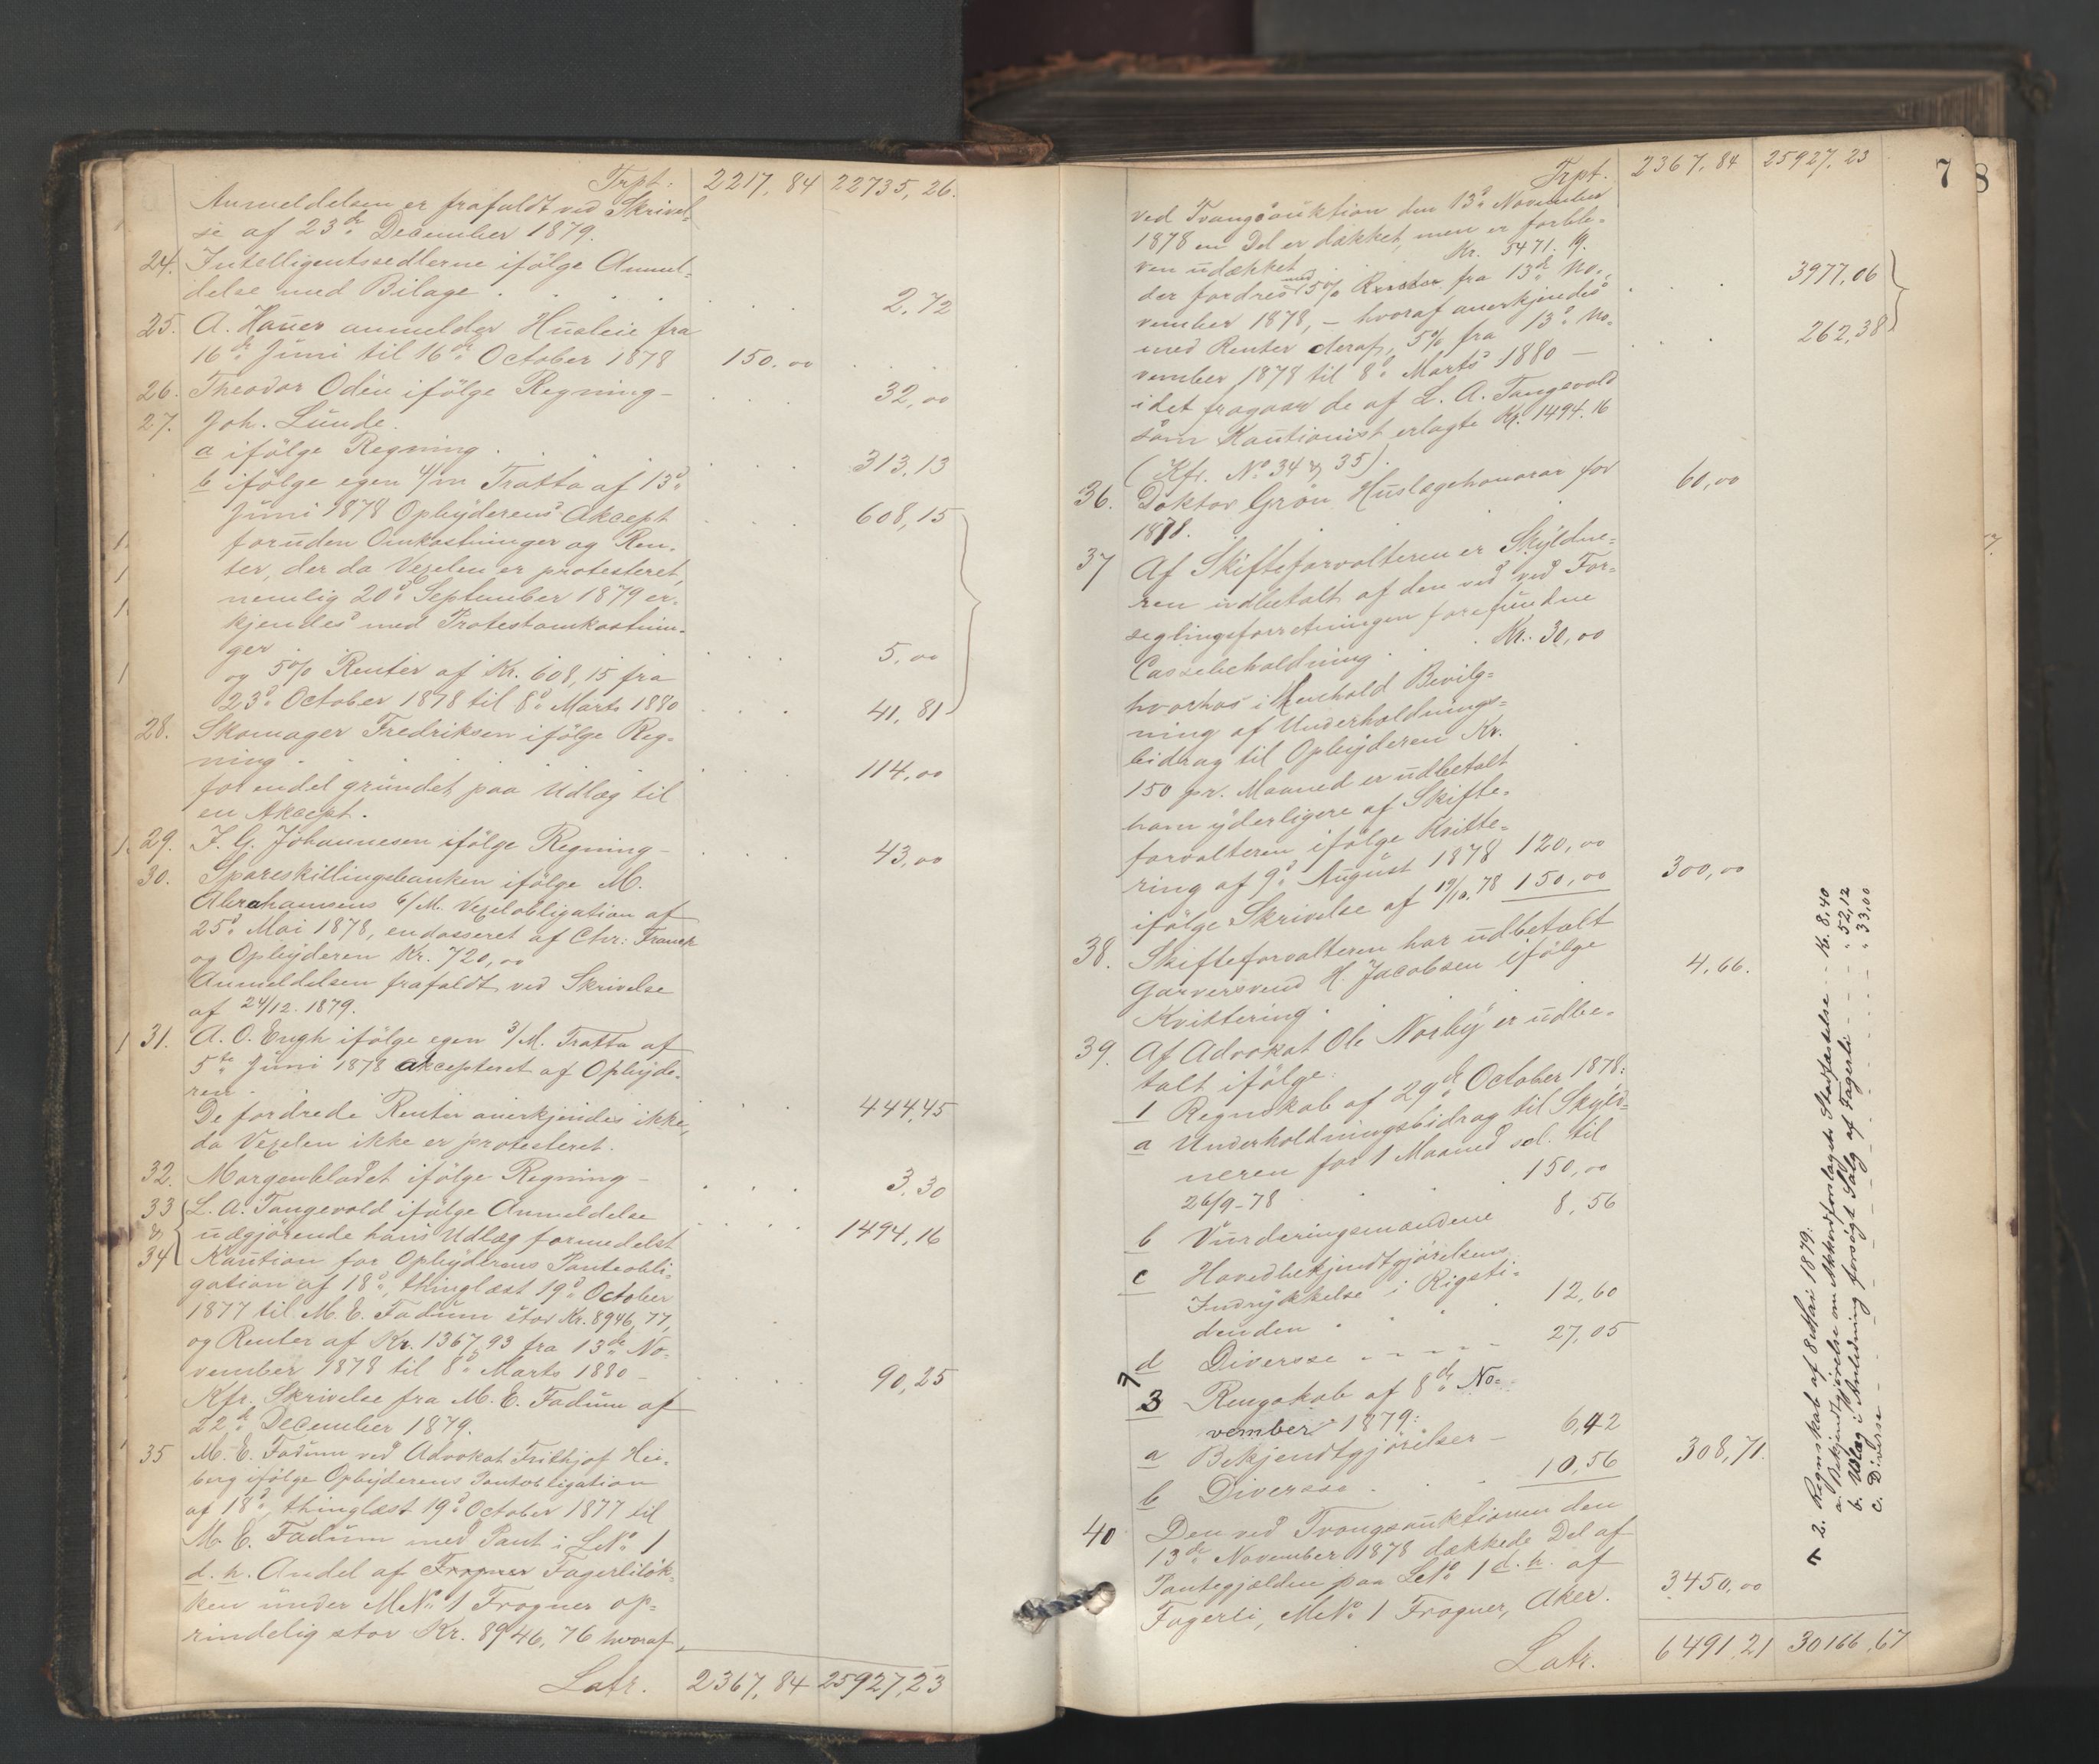 Trpt: 2217,84 22735,26.
Anmeldelsen er frafaldt ved Skrivel-
se af 23de December 1879.
24. Intelligentssedlerne ifölge Anmel-
delse med Bilage . . . . 2,72
25. A. Hauer anmelder Husleie fra
16de Juni til 16de October 1878 150,00
26. Theodor Odén ifölge Regning – 32,00
27. Joh. Lunde.
a ifölge Regning . . . 313,13
b ifölge egen 4/m Tratta af 13d
Juni 1878 Opbyderens Akcept 608,15
foruden Omkostninger og Ren-
ter, der da Vexelen er protesteret,
nemlig 20d September 1879 er-
kjendes med Protestomkostnin-
ger . . . 5,00
og 5% Renter af Kr. 608,15 fra
23d October 1878 til 8d Marts 1880 41,81
28. Skomager Fredriksen ifölge Reg-
ning . . . 114,00
for endel grundet paa Udlæg til
en Akcept.
29. J. G. Johannesen ifölge Regning – 43,00
30. Spareskillingsbanken ifölge M.
Abrahamsens 6/M. Vexelobligation af
25d Mai 1878, endosseret af Chr: Franck
og Opbyderen Kr. 720,00
Anmeldelsen frafaldt ved Skrivelse
af 24/12. 1879.
31. A. O. Engh ifölge egen 3/M. Tratta af
5te Juni 1878 akcepteret af Opbyde-
ren .
De fordrede Renter anerkjendes ikke, 444,45
da Vexelen ikke er protesteret.
32. Morgenbladet ifölge Regning – 3,30
33 L. A. Tangevold ifölge Anmeldelse
& udgjörende hans Udlæg formedelst 1494,16
34 Kaution for Opbyderens Panteobli-
gation af 18d, thinglæst 19d October
1877 til M. E. Fadum stor Kr. 8946,77,
og Renter af Kr. 1367,93 fra 13de No-
vember 1878 til 8d Marts 1880 – 90,25
Kfr. Skrivelse fra M. E. Fadum af
22de December 1879.
35 M. E. Fadum ved Advokat Frithjof Hei-
berg ifölge Opbyderens Pantobligation
af 18d, thinglæst 19d October 1877 til
M. E. Fadum med Pant i LNo 1
d. h. Andel af Frogner Fagerliløk-
ken under MNo 1 Frogner op-
rindelig stor Kr. 8946,76 hvoraf,
Latr. 2367,84 25927,23
7 8
Trpt. 2367,84 25927,23
ved Tvangsauktion den 13d November
1878 en Del er dækket, men er forble-
ven udækket . . Kr. 5471.19.
der fordres med 5% Renter fra 13de No-
vember 1878, – hvoraf anerkjendes 3977,06
med Renter deraf, 5% fra 13d No-
vember 1878 til 8d Marts 1880 – 262,38
idet fragaar de af L. A. Tangevold
som Kautionist erlagte Kr. 1494.16
(Kfr. No 34 & 35).
36. Doktor Grön Huslægehonorar for
1878. 60,00
37 Af Skifteforvalteren er Skyldne-
ren indbetalt af den ved ved For-
seglingsforretningen forefundne
Cassebeholdning . . Kr. 30,00
hvorhos i Henhold Bevilg-
ning af Underholdnings-
bidrag til Opbyderen Kr.
150 pr. Maaned er udbetalt
ham yderligere af Skifte-
forvalteren ifölge Kvitte-
ring af 9d August 1878 120,00
ifölge Skrivelse af 19/10. 78 150,00 300,00
38. Skifteforvalteren har udbetalt
Garversvend H. Jacobsen ifölge
Kvittering . . 4,66.
39. Af Advokat Ole Norby er udbe-
talt ifölge:
1 Regnskab af 29de October 1878:
a Underholdningsbidrag til Skyld-
neren for 1 Maaned sel. til
26/9-78 . . 150,00
b Vurderingsmændene 8,56
c Hovedbekjendtgjörelsens
Indrykkelse i Rigsti-
denden . . . 12,60
d Diversse - - - - 27,05
3 Rengskab af 8de No-
vember 1879:
a Bekjendtgjörelser – 6,42
b Diversse . . 10,56 308,71.
40 Den ved Tvangsauktionen den
13de November 1878 dækkede Del af
Pantegjælden paa LNo 1 d. h. af
Fagerli, MNo 1 Frogner, Aker. 3450,00
Latr. 6491,21 30166,67
2. Regnskab af 8 Mai 1879:
a. Bekjendtgjörelse om Akkordforslagets Stadfæstelse - - Kr. 8,40
b. Udlæg i Anledning forsögt Salg af Fagerli - - - " 52,12
c. Diverse - - - - - - " 33,00